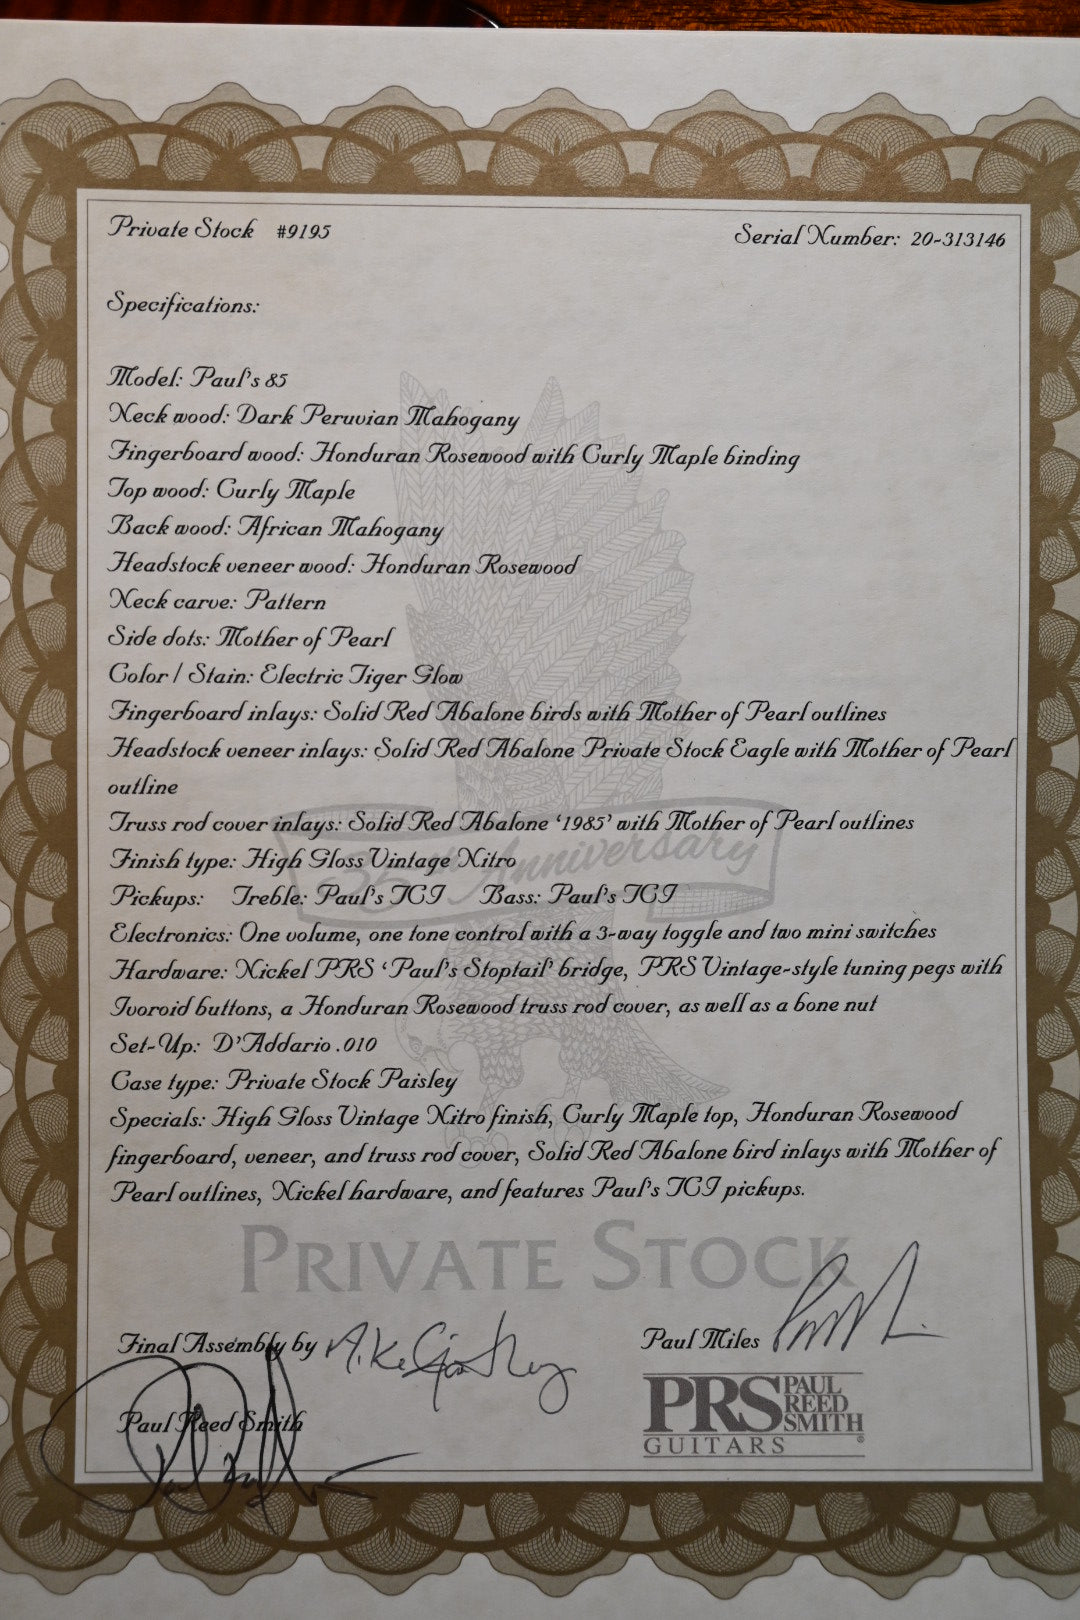 Private Stock #9195
Serial Number: 20-313146
Specifications:
Model: Paul's 85
Neck wood: Dark Peruvian Mahogany
Fingerboard wood: Honduran Rosewood with Curly Maple binding
Top wood: Curly Maple
Back wood: African Mahogany
Headstock veneer wood: Honduran Rosewood
Neck carve: Pattern
Side dots: Mother of Pearl
Color / Stain: Electric Tiger Glow
Fingerboard inlays: Solid Red Abalone birds with Mother of Pearl outlines
Headstock veneer inlays: Solid Red Abalone Private Stock Eagle with Mother of Pearl
outline
Truss rod cover inlays: Solid Red Abalone ‘1985’ with Mother of Pearl outlines
35th Anniversary
Finish type: High Gloss Vintage Nitro
Pickups: Treble: Paul's TCI Bass: Paul's TCI
Electronics: One volume, one tone control with a 3-way toggle and two mini switches
Hardware: Nickel PRS ‘Paul's Stoptail’ bridge, PRS Vintage-style tuning pegs with
Ivoroid buttons, a Honduran Rosewood truss rod cover, as well as a bone nut
Set-Up: D'Addario .010
Case type: Private Stock Paisley
Specials: High Gloss Vintage Nitro finish, Curly Maple top, Honduran Rosewood
fingerboard, veneer, and truss rod cover, Solid Red Abalone bird inlays with Mother of
Pearl outlines, Nickel hardware, and features Paul's TCI pickups.
PRIVATE STOCK
Final Assembly by Mike
Paul Miles
Paul Reed Smith
PRS PAUL REED SMITH
GUITARS